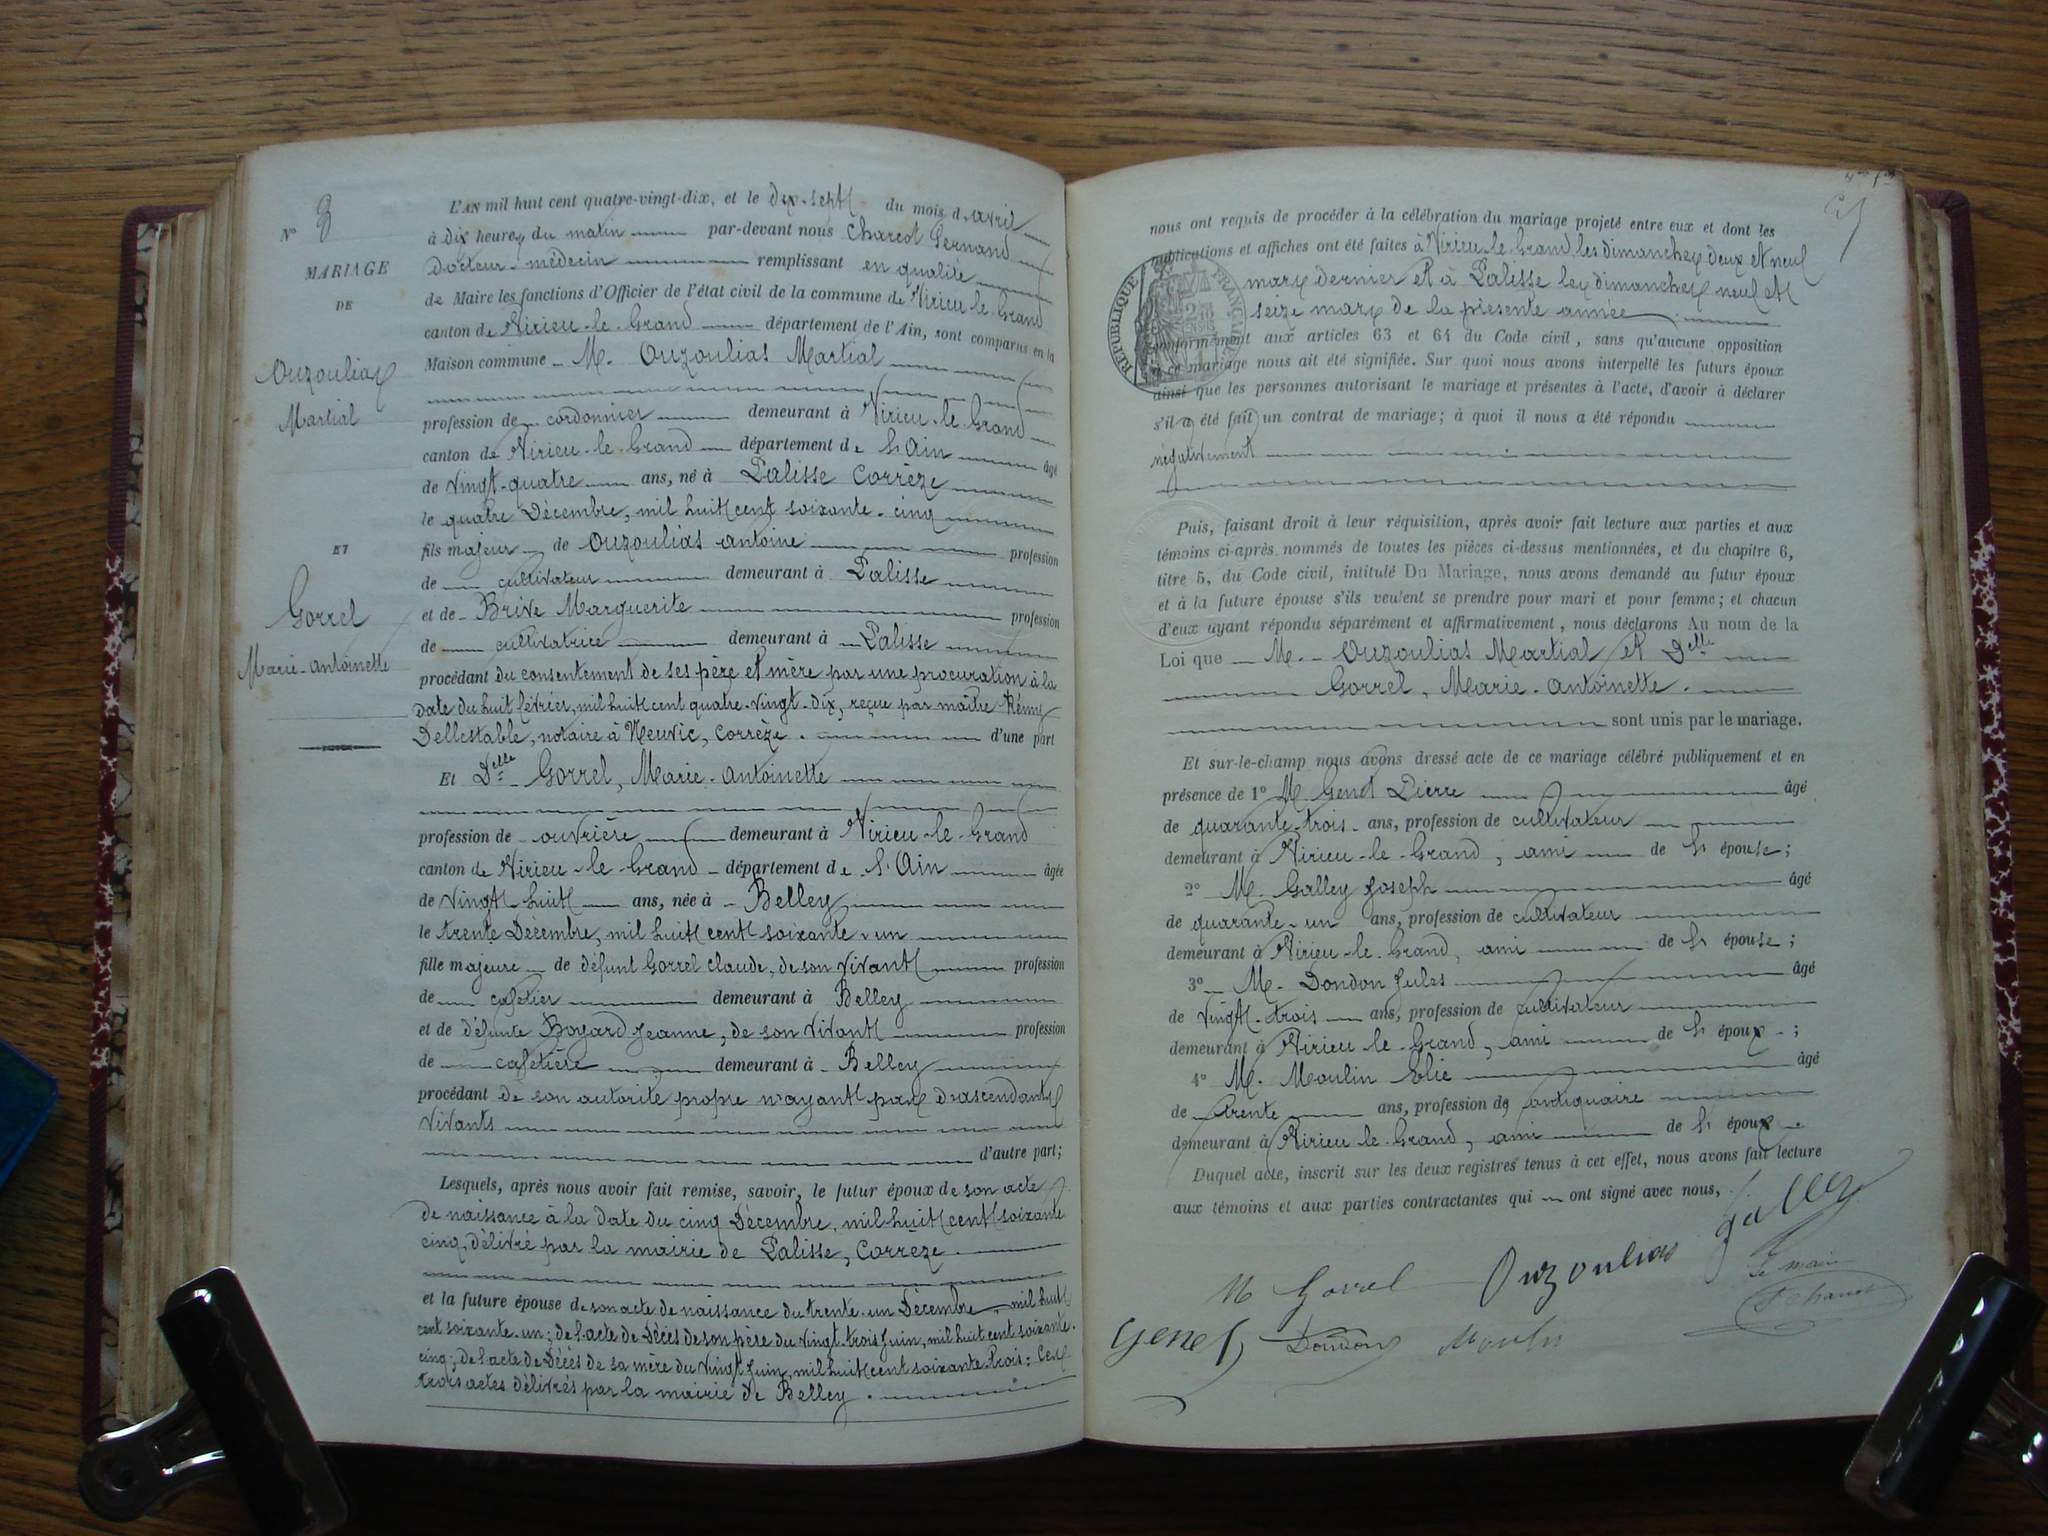 N° 8
MARIAGE
DE
Ouzoulias
Martial
ET
Gorrel
Marie-Antoinette
L'AN mil huit cent quatre-vingt-dix, et le dix-sept du mois d'avril
à dix heures du matin par-devant nous Charcot Fernand
Docteur-médecin remplissant en qualité
de Maire les fonctions d'Officier de l'état civil de la commune de Virieu-le-Grand
canton de Virieu-le-Grand département de l'Ain, sont comparus en la
Maison commune M. Ouzoulias Martial
profession de cordonnier demeurant à Virieu-le-Grand
canton de Virieu-le-Grand département de l'Ain âgé
de vingt-quatre ans, né à Palisse Corrèze
le quatre Décembre, mil huit cent soixante-cinq
fils majeur de Ouzoulias Antoine profession
de cultivateur demeurant à Palisse
et de Brive Marguerite profession
de cultivatrice demeurant à Palisse
procédant du consentement de ses père et mère par une procuration à la
date du huit février, mil huit cent quatre-vingt-dix, reçue par maître Rémy
Dellestable, notaire à Neuvic, Corrèze. d'une part
Et Delle Gorrel, Marie-Antoinette
profession de ouvrière demeurant à Virieu-le-Grand
canton de Virieu-le-Grand département de l'Ain âgée
de vingt-huit ans, née à Belley
le trente Décembre, mil huit cent soixante-un
fille majeure de défunt Gorrel Claude, de son vivant profession
de cafetier demeurant à Belley
et de défunte Boyard Jeanne, de son vivant profession
de cafetière demeurant à Belley
procédant de son autorité propre n'ayant pas d'ascendants
vivants
d'autre part;
Lesquels, après nous avoir fait remise, savoir, le futur époux de son acte
de naissance à la date du cinq Décembre, mil huit cent soixante
cinq, délivré par la mairie de Palisse, Corrèze.
et la future épouse de son acte de naissance du trente-un Décembre, mil huit
cent soixante-un; de l'acte de décès de son père du vingt-trois Juin, mil huit cent soixante-
cinq; de l'acte de décès de sa mère du vingt Juin, mil huit cent soixante-trois: Ces
trois actes délivrés par la mairie de Belley.
nous ont requis de procéder à la célébration du mariage projeté entre eux et dont les
publications et affiches ont été faites à Virieu-le-Grand les dimanches deux et neuf
mars dernier et à Palisse les dimanches neuf et
seize mars de la présente année
RÉPUBLIQUE FRANÇAISE
conformément aux articles 63 et 64 du Code civil, sans qu'aucune opposition
à ce mariage nous ait été signifiée. Sur quoi nous avons interpellé les futurs époux
ainsi que les personnes autorisant le mariage et présentes à l'acte, d'avoir à déclarer
s'il a été fait un contrat de mariage; à quoi il nous a été répondu
négativement
Puis, faisant droit à leur réquisition, après avoir fait lecture aux parties et aux
témoins ci-après nommés de toutes les pièces ci-dessus mentionnées, et du chapitre 6,
titre 5, du Code civil, intitulé Du Mariage, nous avons demandé au futur époux
et à la future épouse s'ils veulent se prendre pour mari et pour femme; et chacun
d'eux ayant répondu séparément et affirmativement, nous déclarons Au nom de la
Loi que M. Ouzoulias Martial et Delle
Gorrel, Marie-Antoinette.
sont unis par le mariage.
Et sur-le-champ nous avons dressé acte de ce mariage célébré publiquement et en
présence de 1° M Genet Pierre âgé
de quarante-trois ans, profession de cultivateur
demeurant à Virieu-le-Grand, ami de l' épouse;
2° M. Galley Joseph âgé
de quarante-un ans, profession de cultivateur
demeurant à Virieu-le-Grand, ami de l' épouse;
3° M. Dondon Jules âgé
de vingt-trois ans, profession de cultivateur
demeurant à Virieu-le-Grand, ami de l' époux;
4° M. Moulin Elie âgé
de trente ans, profession de antiquaire
demeurant à Virieu-le-Grand, ami de l' époux
Duquel acte, inscrit sur les deux registres tenus à cet effet, nous avons fait lecture
aux témoins et aux parties contractantes qui ont signé avec nous,
galley
M Gorrel Ouzoulias
Le maire
Genet Dondon Moulin